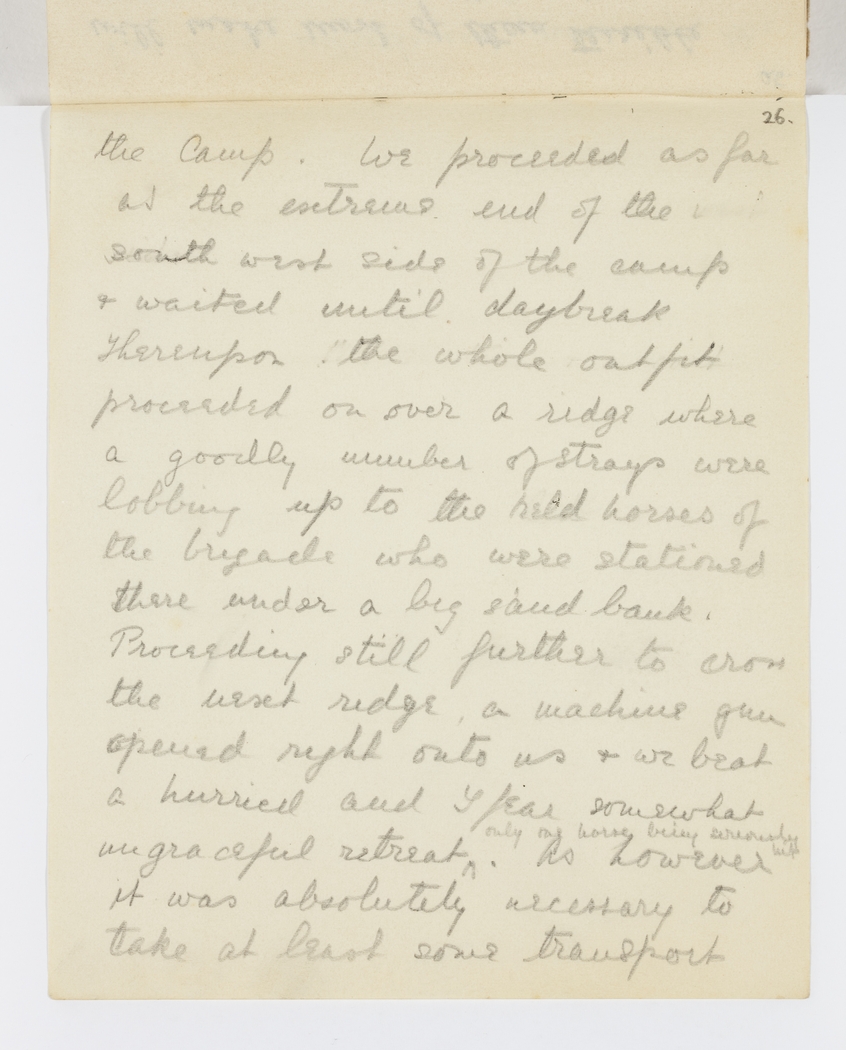 26.
the Camp. We proceeded as far
as the extreme end of the
south west side of the camp
& waited until daybreak
Thereupon the whole outfit
proceeded on over a ridge where
a goodly number of strays were
lobbing up to the held horses of
the brigade who were stationed
there under a big sand bank.
Proceeding still further to cross
the next ridge, a machine gun
opened right onto us & we beat
a hurried and I fear somewhat
only one horse being seriously hit
ungraceful retreat^. As however
it was absolutely necessary to
take at least some transport